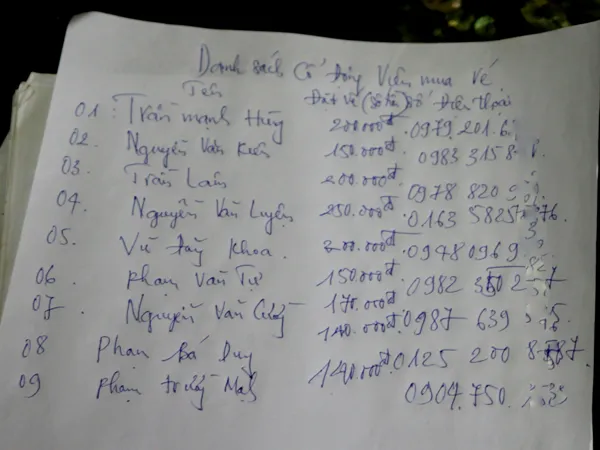 Danh sách Cổ Động Viên mua vé
Tên Đặt vé (số tiền) Số Điện thoại
01. Trần Mạnh Hùng 200.000đ. 0979.201.6
02. Nguyễn Văn Kiên 150.000đ. 0983 3158
03. Trần Lâm 200.000đ. 0978 820
04. Nguyễn Văn Luyện 250.000đ. 0163 5825 76.
05. Vũ Đăng Khoa. 300.000đ. 0948 0969
06. Phạm Văn Tự 150.000đ. 0982
07. Nguyễn Văn 170.000đ. 0987 639
08 Phan Bá Duy 140.000đ. 0125 200 87.
09 Phạm Mạnh 140.000đ. 0904.750.